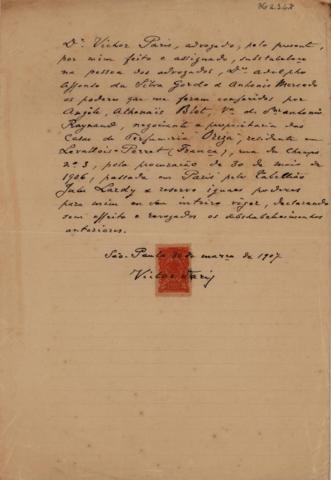 Dr. Victor Paris, advogado, pelo presente,
por mim feito e assignado, substabeleço
na pessoa dos advogados, Drs. Adolpho
Affonso da Silva Gordo e Antonio Mercado
os poderes que me foram conferidos por
Angèle Athenaïs Blot, Va. de Antonio
Raynaud, negociante e proprietaria das
Casas de Perfumaria Oriza, residente em
Levallois-Perret (França), rua de
nº 3, pela procuração de 30 de maio de
1906, passada em Paris pelo Tabellião
Jules Lardy e reservo iguaes poderes
para mim em seu inteiro vigor, declarando
sem effeito e revogados os substabelecimentos
anteriores.
São Paulo, de março de 1907.
Victor Paris